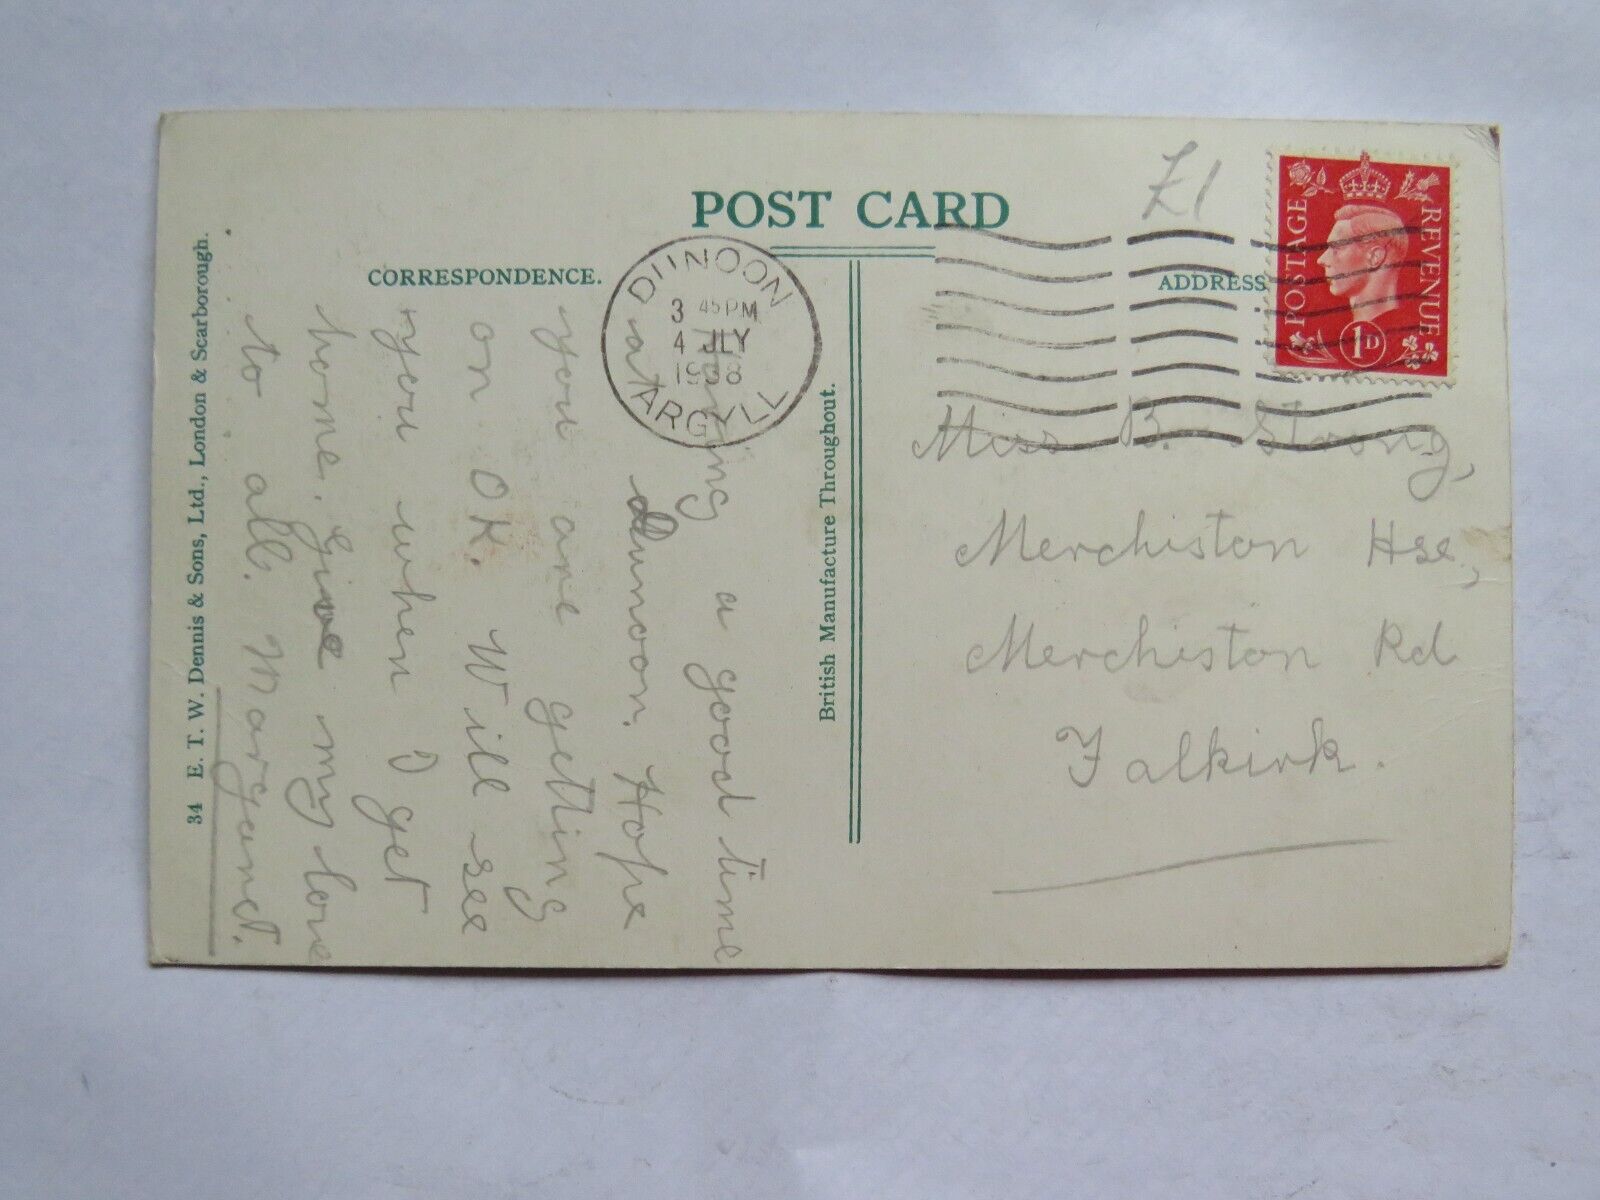 POST CARD
CORRESPONDENCE.
ADDRESS
£1
POSTAGE
REVENUE
1D
DUNOON
3 45 PM
4 JLY
1938
ARGYLL
Having a good time
at Dunoon. Hope
you are getting
on OK. Will see
you when I get
home. Give my love
to all. Margaret.
Miss B. Strong,
Merchiston Hse,
Merchiston Rd
Falkirk.
British Manufacture Throughout.
34 E. T. W. Dennis & Sons, Ltd., London & Scarborough.